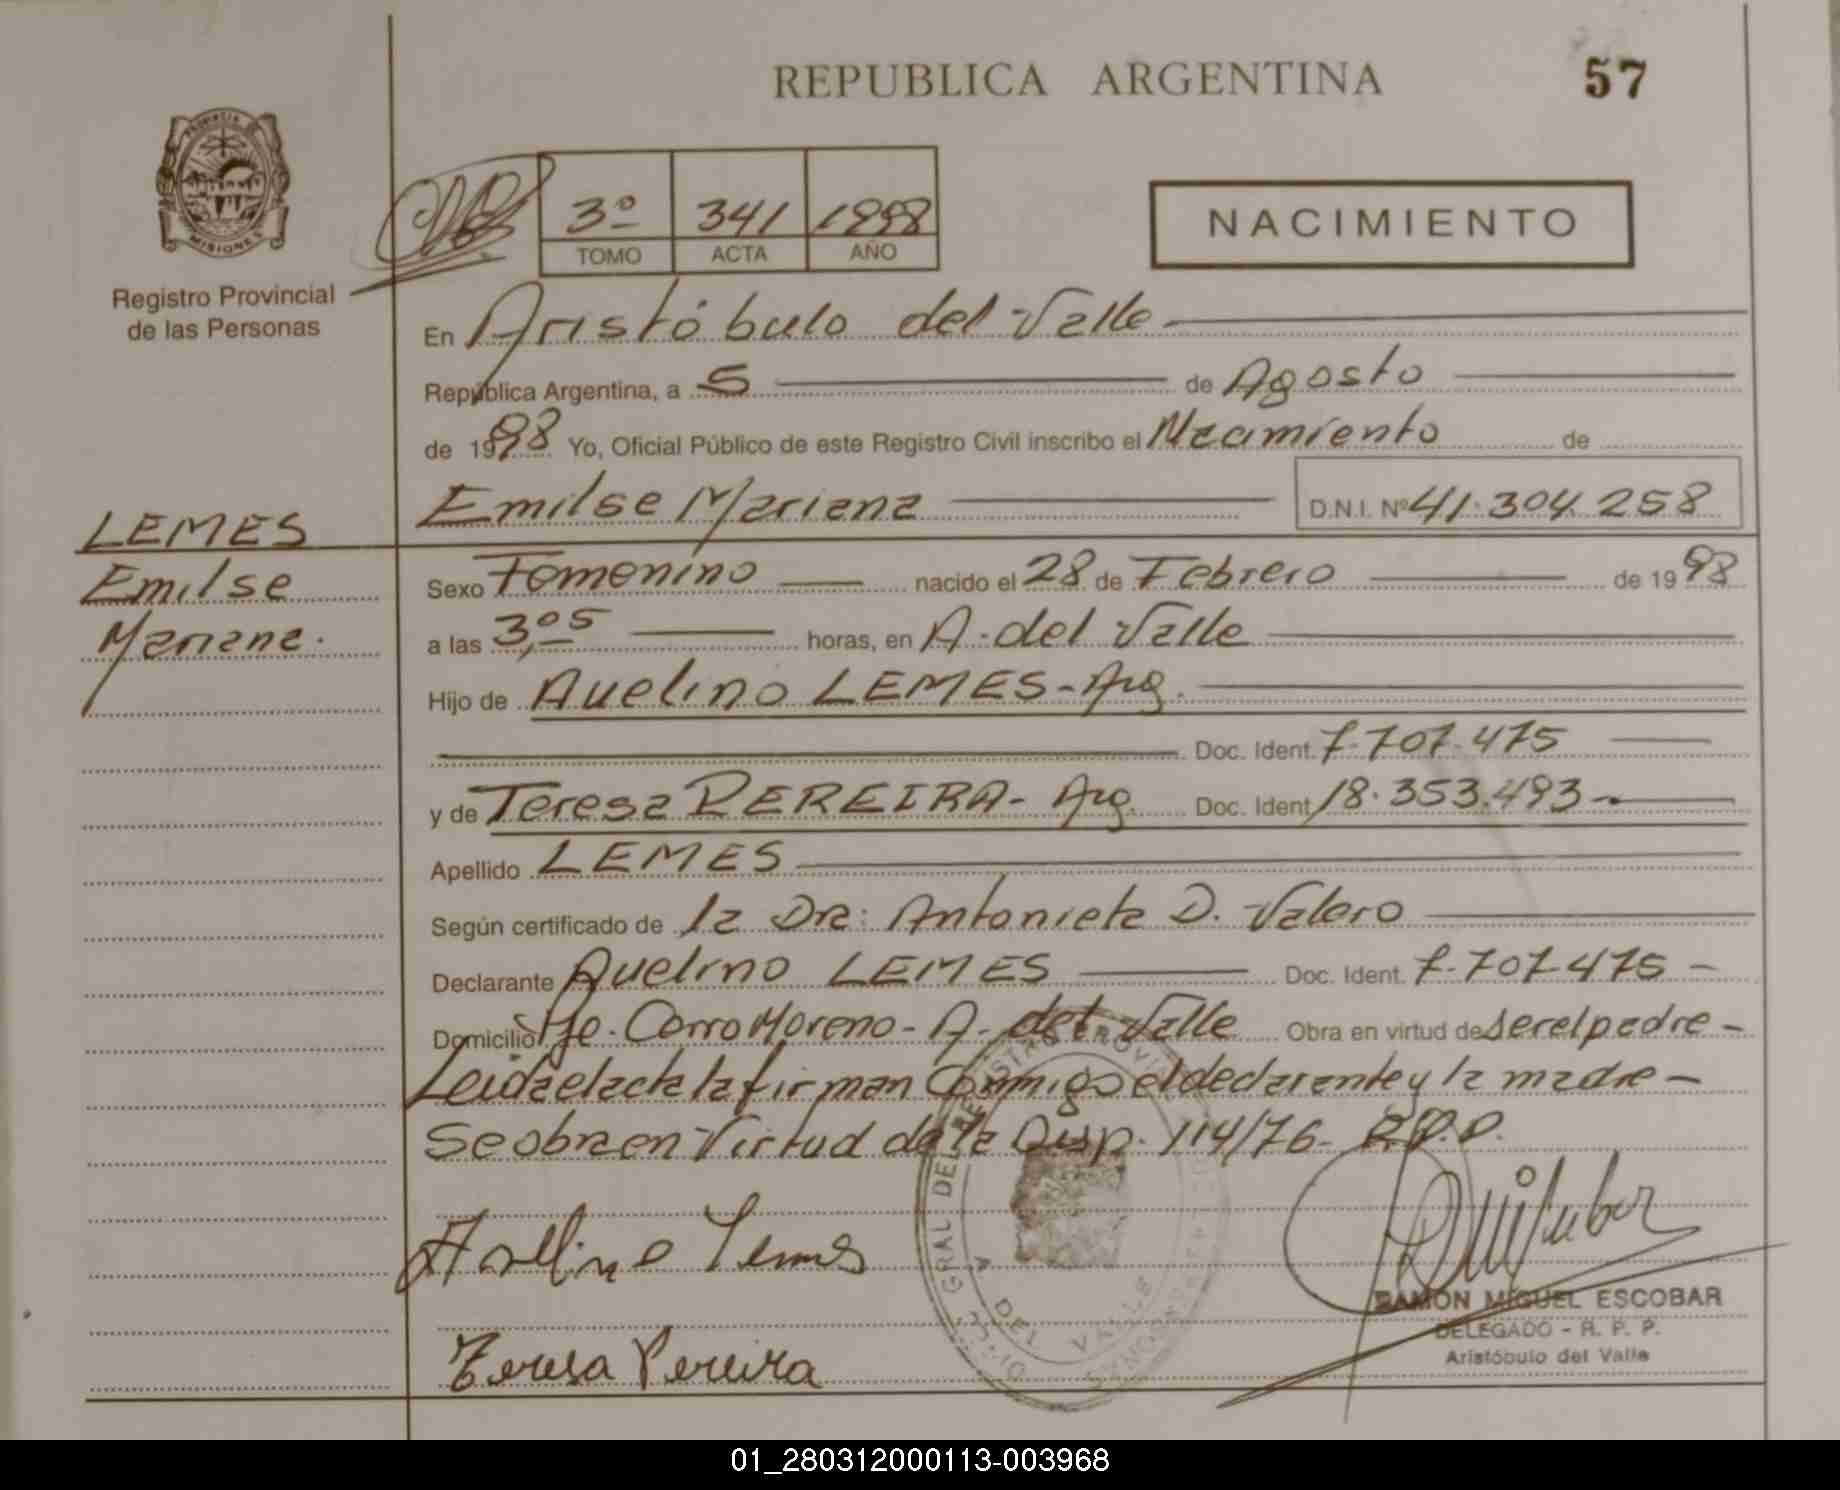 REPUBLICA ARGENTINA
57
PROVINCIA DE
MISIONES
Registro Provincial
de las Personas
3º 341 1998
TOMO ACTA AÑO
NACIMIENTO
En Aristóbulo del Valle
República Argentina, a 5 de Agosto
de 1998 Yo, Oficial Público de este Registro Civil inscribo el Nacimiento de
Emilse Mariana D.N.I. Nº 41.304.258
LEMES
Emilse
Mariana.
Sexo Femenino nacido el 28 de Febrero de 1998
a las 3,05 horas, en A. del Valle
Hijo de Avelino LEMES - Arg.
Doc. Ident. 7.707.475
y de Teresa PEREIRA - Arg. Doc. Ident. 18.353.493
Apellido LEMES
Según certificado de la Dra: Antonieta D. Valero
Declarante Avelino LEMES Doc. Ident. 7.707.475 -
Domicilio Cerro Moreno - A. del Valle Obra en virtud de ser el padre -
Leida el acta la firman conmigo el declarante y la madre -
Se obra en Virtud de la Disp. 114/76 - R.P.P.
Avelino Lemes
Teresa Pereira
RAMON MIGUEL ESCOBAR
DELEGADO - R. P. P.
Aristóbulo del Valle
GRAL DEL REGISTRO PROVINCIAL
A. DEL VALLE
MISIONES
01_280312000113-003968